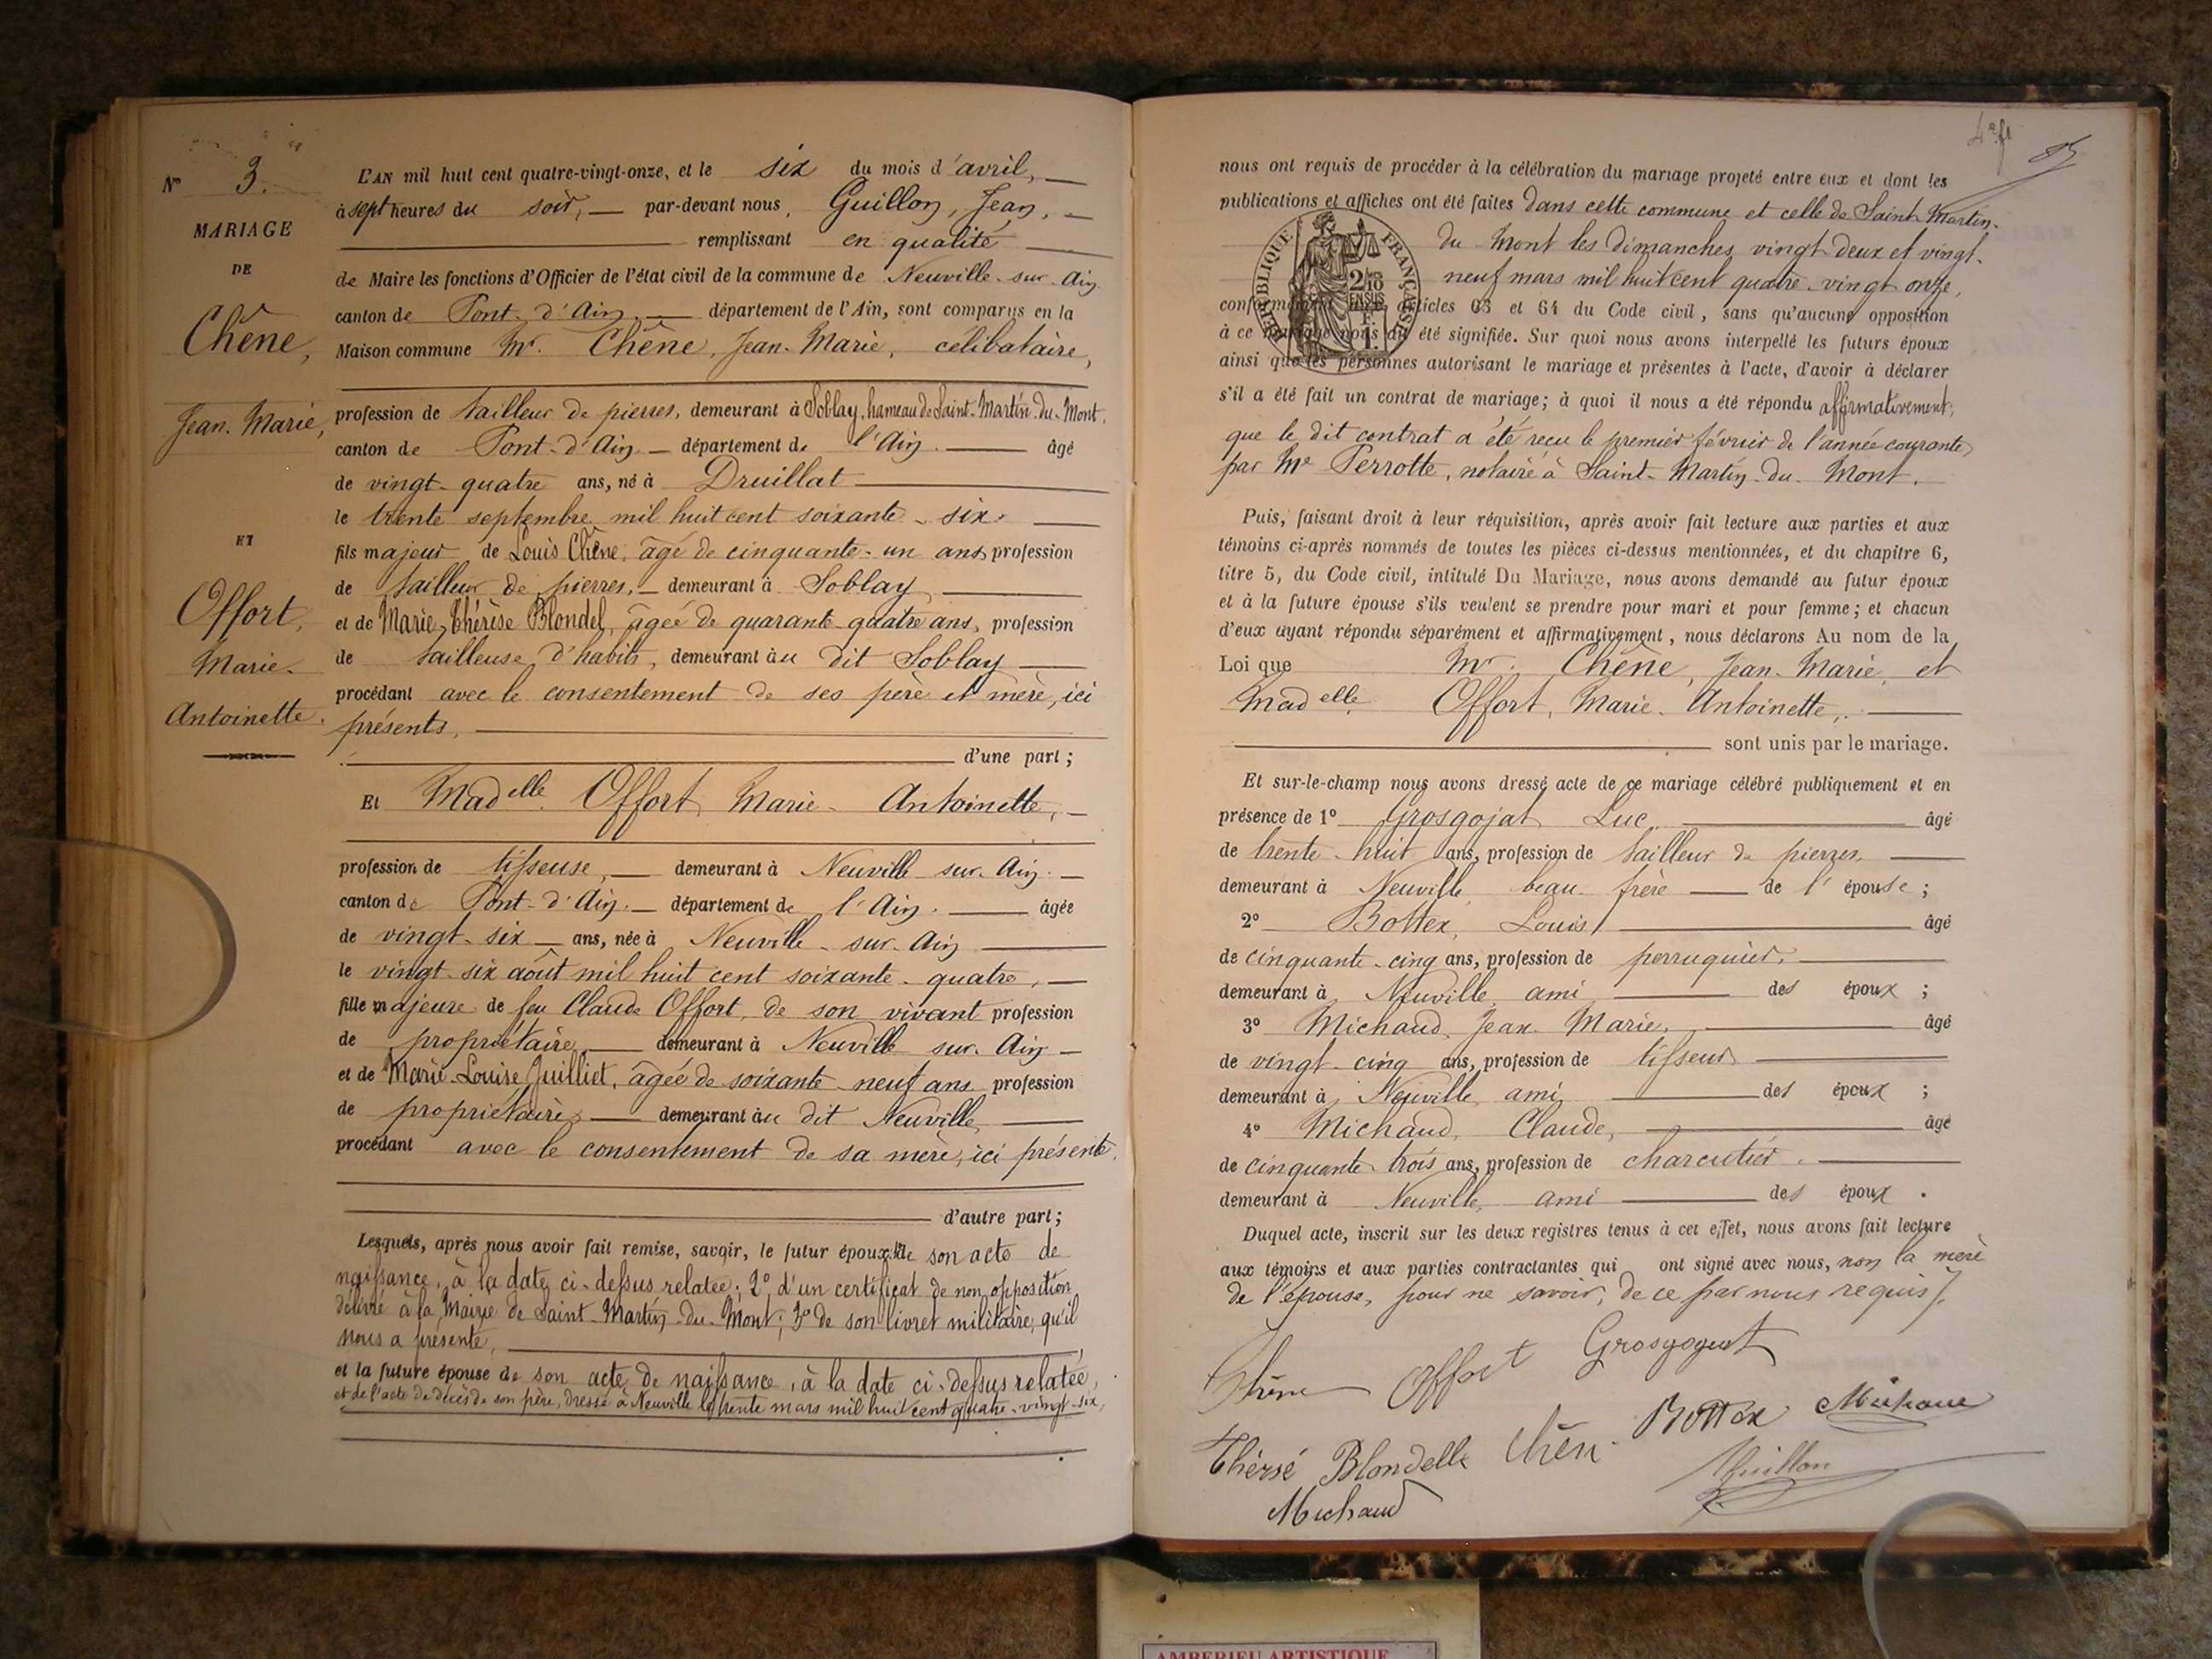 N° 3.
MARIAGE
DE
Chêne,
Jean-Marie,
ET
Offort,
Marie-
Antoinette.
L'AN mil huit cent quatre-vingt-onze, et le six du mois d'avril,
à sept heures du soir, par-devant nous, Guillon, Jean,
remplissant en qualité
de Maire les fonctions d'Officier de l'état civil de la commune de Neuville-sur-Ain
canton de Pont-d'Ain, département de l'Ain, sont comparus en la
Maison commune Mr. Chêne, Jean-Marie, célibataire,
profession de tailleur de pierres, demeurant à Soblay, hameau de Saint-Martin-du-Mont,
canton de Pont-d'Ain département de l'Ain. âgé
de vingt-quatre ans, né à Druillat
le trente septembre mil huit cent soixante-six.
fils majeur de Louis Chêne, âgé de cinquante-un ans, profession
de tailleur de pierres, demeurant à Soblay
et de Marie-Thérèse Blondel, âgée de quarante-quatre ans, profession
de tailleuse d'habits, demeurant au dit Soblay
procédant avec le consentement de ses père et mère, ici
présents,
d'une part ;
Et Madelle Offort, Marie-Antoinette,
profession de tisseuse, demeurant à Neuville-sur-Ain.
canton de Pont-d'Ain. département de l'Ain. âgée
de vingt-six ans, née à Neuville-sur-Ain
le vingt-six août mil huit cent soixante-quatre,
fille majeure de feu Claude Offort, de son vivant profession
de propriétaire demeurant à Neuville-sur-Ain
et de Marie-Louise Juilliet, âgée de soixante-neuf ans profession
de propriétaire, demeurant au dit Neuville,
procédant avec le consentement de sa mère, ici présente,
d'autre part ;
Lesquels, après nous avoir fait remise, savoir, le futur époux, de son acte de
naissance, à la date ci-dessus relatée ; 2° d'un certificat de non opposition
délivré à la Mairie de Saint-Martin-du-Mont ; 3° de son livret militaire, qu'il
nous a présenté,
et la future épouse de son acte de naissance, à la date ci-dessus relatée,
et de l'acte de décès de son père, dressé à Neuville le trente mars mil huit cent quatre-vingt-six,
nous ont requis de procéder à la célébration du mariage projeté entre eux et dont les
publications et affiches ont été faites dans cette commune et celle de Saint-Martin-
du-Mont les dimanches vingt-deux et vingt-
neuf mars mil huit cent quatre-vingt-onze,
conformément aux articles 63 et 64 du Code civil, sans qu'aucune opposition
à ce mariage nous ait été signifiée. Sur quoi nous avons interpellé les futurs époux
ainsi que les personnes autorisant le mariage et présentes à l'acte, d'avoir à déclarer
s'il a été fait un contrat de mariage ; à quoi il nous a été répondu affirmativement,
que le dit contrat a été reçu le premier février de l'année courante
par Me Perrotte, notaire à Saint-Martin-du-Mont.
RÉPUBLIQUE FRANÇAISE
2/10 EN SUS
1 F.
Puis, faisant droit à leur réquisition, après avoir fait lecture aux parties et aux
témoins ci-après nommés de toutes les pièces ci-dessus mentionnées, et du chapitre 6,
titre 5, du Code civil, intitulé Du Mariage, nous avons demandé au futur époux
et à la future épouse s'ils veulent se prendre pour mari et pour femme ; et chacun
d'eux ayant répondu séparément et affirmativement, nous déclarons Au nom de la
Loi que Mr. Chêne, Jean-Marie, et
Madelle Offort, Marie-Antoinette,
sont unis par le mariage.
Et sur-le-champ nous avons dressé acte de ce mariage célébré publiquement et en
présence de 1° Grosgojat Luc, âgé
de trente-huit ans, profession de tailleur de pierres,
demeurant à Neuville, beau-frère de l'épouse ;
2° Bottex, Louis, âgé
de cinquante-cinq ans, profession de perruquier,
demeurant à Neuville, ami des époux ;
3° Michaud, Jean-Marie, âgé
de vingt-cinq ans, profession de tisseur
demeurant à Neuville, ami des époux ;
4° Michaud, Claude, âgé
de cinquante-trois ans, profession de charcutier.
demeurant à Neuville, ami des époux.
Duquel acte, inscrit sur les deux registres tenus à cet effet, nous avons fait lecture
aux témoins et aux parties contractantes qui ont signé avec nous, non la mère
de l'épouse, pour ne savoir, de ce par nous requis.
Chêne Offort Grosgogeat
Bottex Michaud
Thérsé Blondelle Chêne
Guillon
Michaud
AMBERIEU ARTISTIQUE